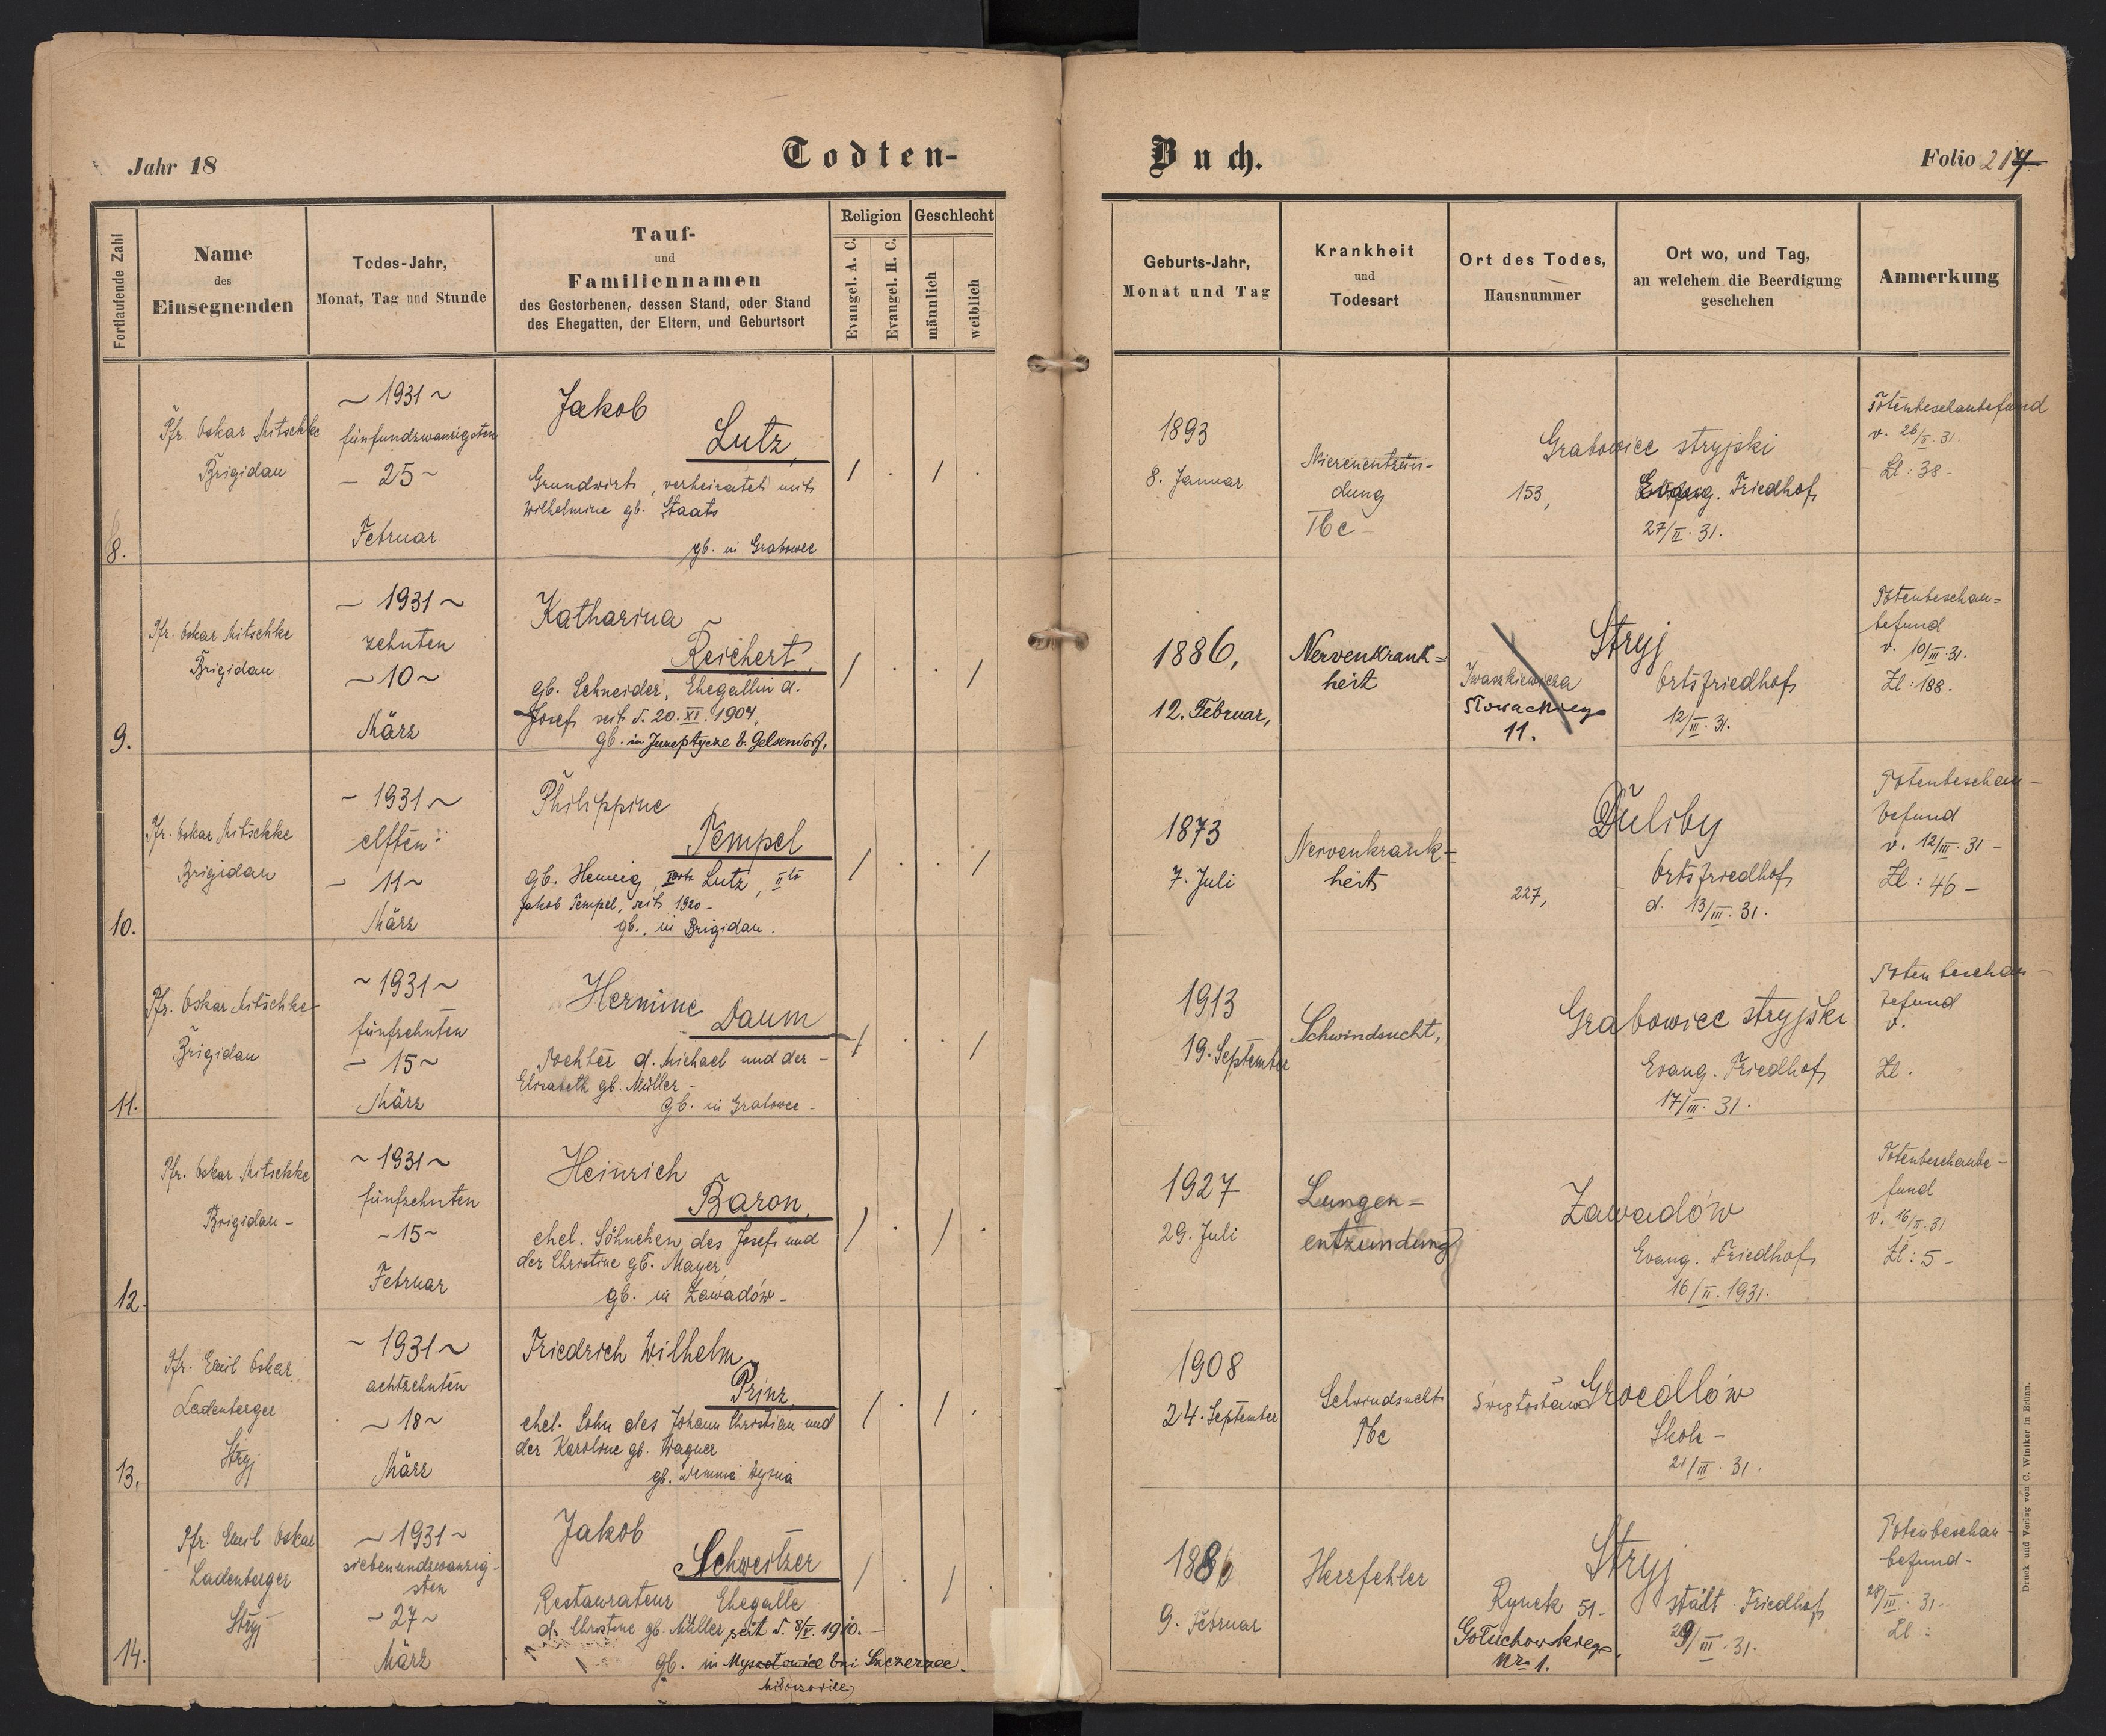 Jahr 18
Todten-
Buch.
Folio 217
Fortlaufende Zahl
Name
des
Einsegnenden
Todes-Jahr,
Monat, Tag und Stunde
Tauf-
und
Familiennamen
des Gestorbenen, dessen Stand, oder Stand
des Ehegatten, der Eltern, und Geburtsort
Religion
Evangel. A. C.
Evangel. H. C.
Geschlecht
männlich
weiblich
Geburts-Jahr,
Monat und Tag
Krankheit
und
Todesart
Ort des Todes,
Hausnummer
Ort wo, und Tag,
an welchem die Beerdigung
geschehen
Anmerkung
8.
Pfr. Oskar Mitschke
Brigidau
~ 1931 ~
fünfundzwanzigsten
– 25 ~
Februar
Jakob
Lutz,
Grundwirt, verheiratet mit
Wilhelmine gb. Staats
gb. in Grabowce
/ . / .
1893
8. Januar
Nierenentzün-
dung
Tbc
Grabowice stryjski
153,
Evang. Friedhof
27/II. 31.
Totenbeschaubefund
v. 26/II. 31.
Zl: 38-
9.
Pfr. Oskar Mitschke
Brigidau
– 1931 ~
zehnten
~ 10 ~
März
Katharina
Reichert,
gb. Schneider, Ehegattin d.
Josef seit d. 20. XI. 1904,
gb. in Juseptycze b. Gelsendorf,
/ . . /
1886,
12. Februar,
Nervenkrank=
heit
Stryj
Iwaszkiewicza
Słowackiego
11.
Ortsfriedhof
12/III. 31.
Totenbeschau=
befund
v. 10/III. 31.
Zl: 188.
10.
Pfr. Oskar Mitschke
Brigidau
– 1931 ~
elften
– 11 ~
März
Philippine
Tempel
gb. Hennig, Lutz, IIto
Jakob Tempel, seit 1920 -
gb. in Brigidau.
/ . . /
1873
7. Juli
Nervenkrank=
heit
Duliby
227,
Ortsfriedhof
d. 13/III. 31.
Totenbeschau-
befund
v. 12/III. 31 -
Zl: 46 -
11.
Pfr. Oskar Mitschke
Brigidau
~ 1931 ~
fünfzehnten
– 15 ~
März
Hermine
Daum
Tochter d. Michael und der -
Elisabeth gb. Müller -
gb. in Grabowce -
/ . . /
1913
19. September
Schwindsucht,
Grabowiec stryjski
Evang. Friedhof
17/III. 31.
Totenbeschau-
befund
v.
Zl.
12.
Pfr. Oskar Mitschke
Brigidau -
~ 1931 ~
fünfzehnten
~ 15 ~
Februar
Heinrich
Baron,
ehel. Söhnchen des Josef und
der Christine gb. Mayer
gb. in Zawadów -
/ . / .
1927
29. Juli
Lungen=
entzündung
Zawadów
Evang. Friedhof
16/II. 1931.
Totenbeschaube-
fund
v. 16/II. 31
Zl: 5 -
13.
Pfr. Emil Oskar
Ladenberger
Stryj
~ 1931 ~
achtzehnten
~ 18 ~
März
Friedrich Wilhelm
Prinz
ehel. Sohn des Johann Christian und
der Karoline gb. Wagner
gb. Demnia Wyżna
/ . / .
1908
24. September
Schwindsucht
Tbc
Groedlów
Skole -
21/III. 31.
14.
Pfr. Emil Oskar
Ladenberger
Stryj
~ 1931 ~
siebenundzwanzig-
sten
~ 27 ~
März
Jakob
Schweitzer
Restaurateur Ehegatte
d. Christine gb. Müller seit d. 8/V. 1910. -
gb. in Myszotowice bei Szczerzec.
/ . / .
1886
9. Februar
Herzfehler
Stryj
Rynek 51-
Gołuchowskiego
Nro 1.
städt. Friedhof
29/III. 31.
Totenbeschau-
befund -
28/III. 31.
Zl:
Druck und Verlag von C. Winiker in Brünn.